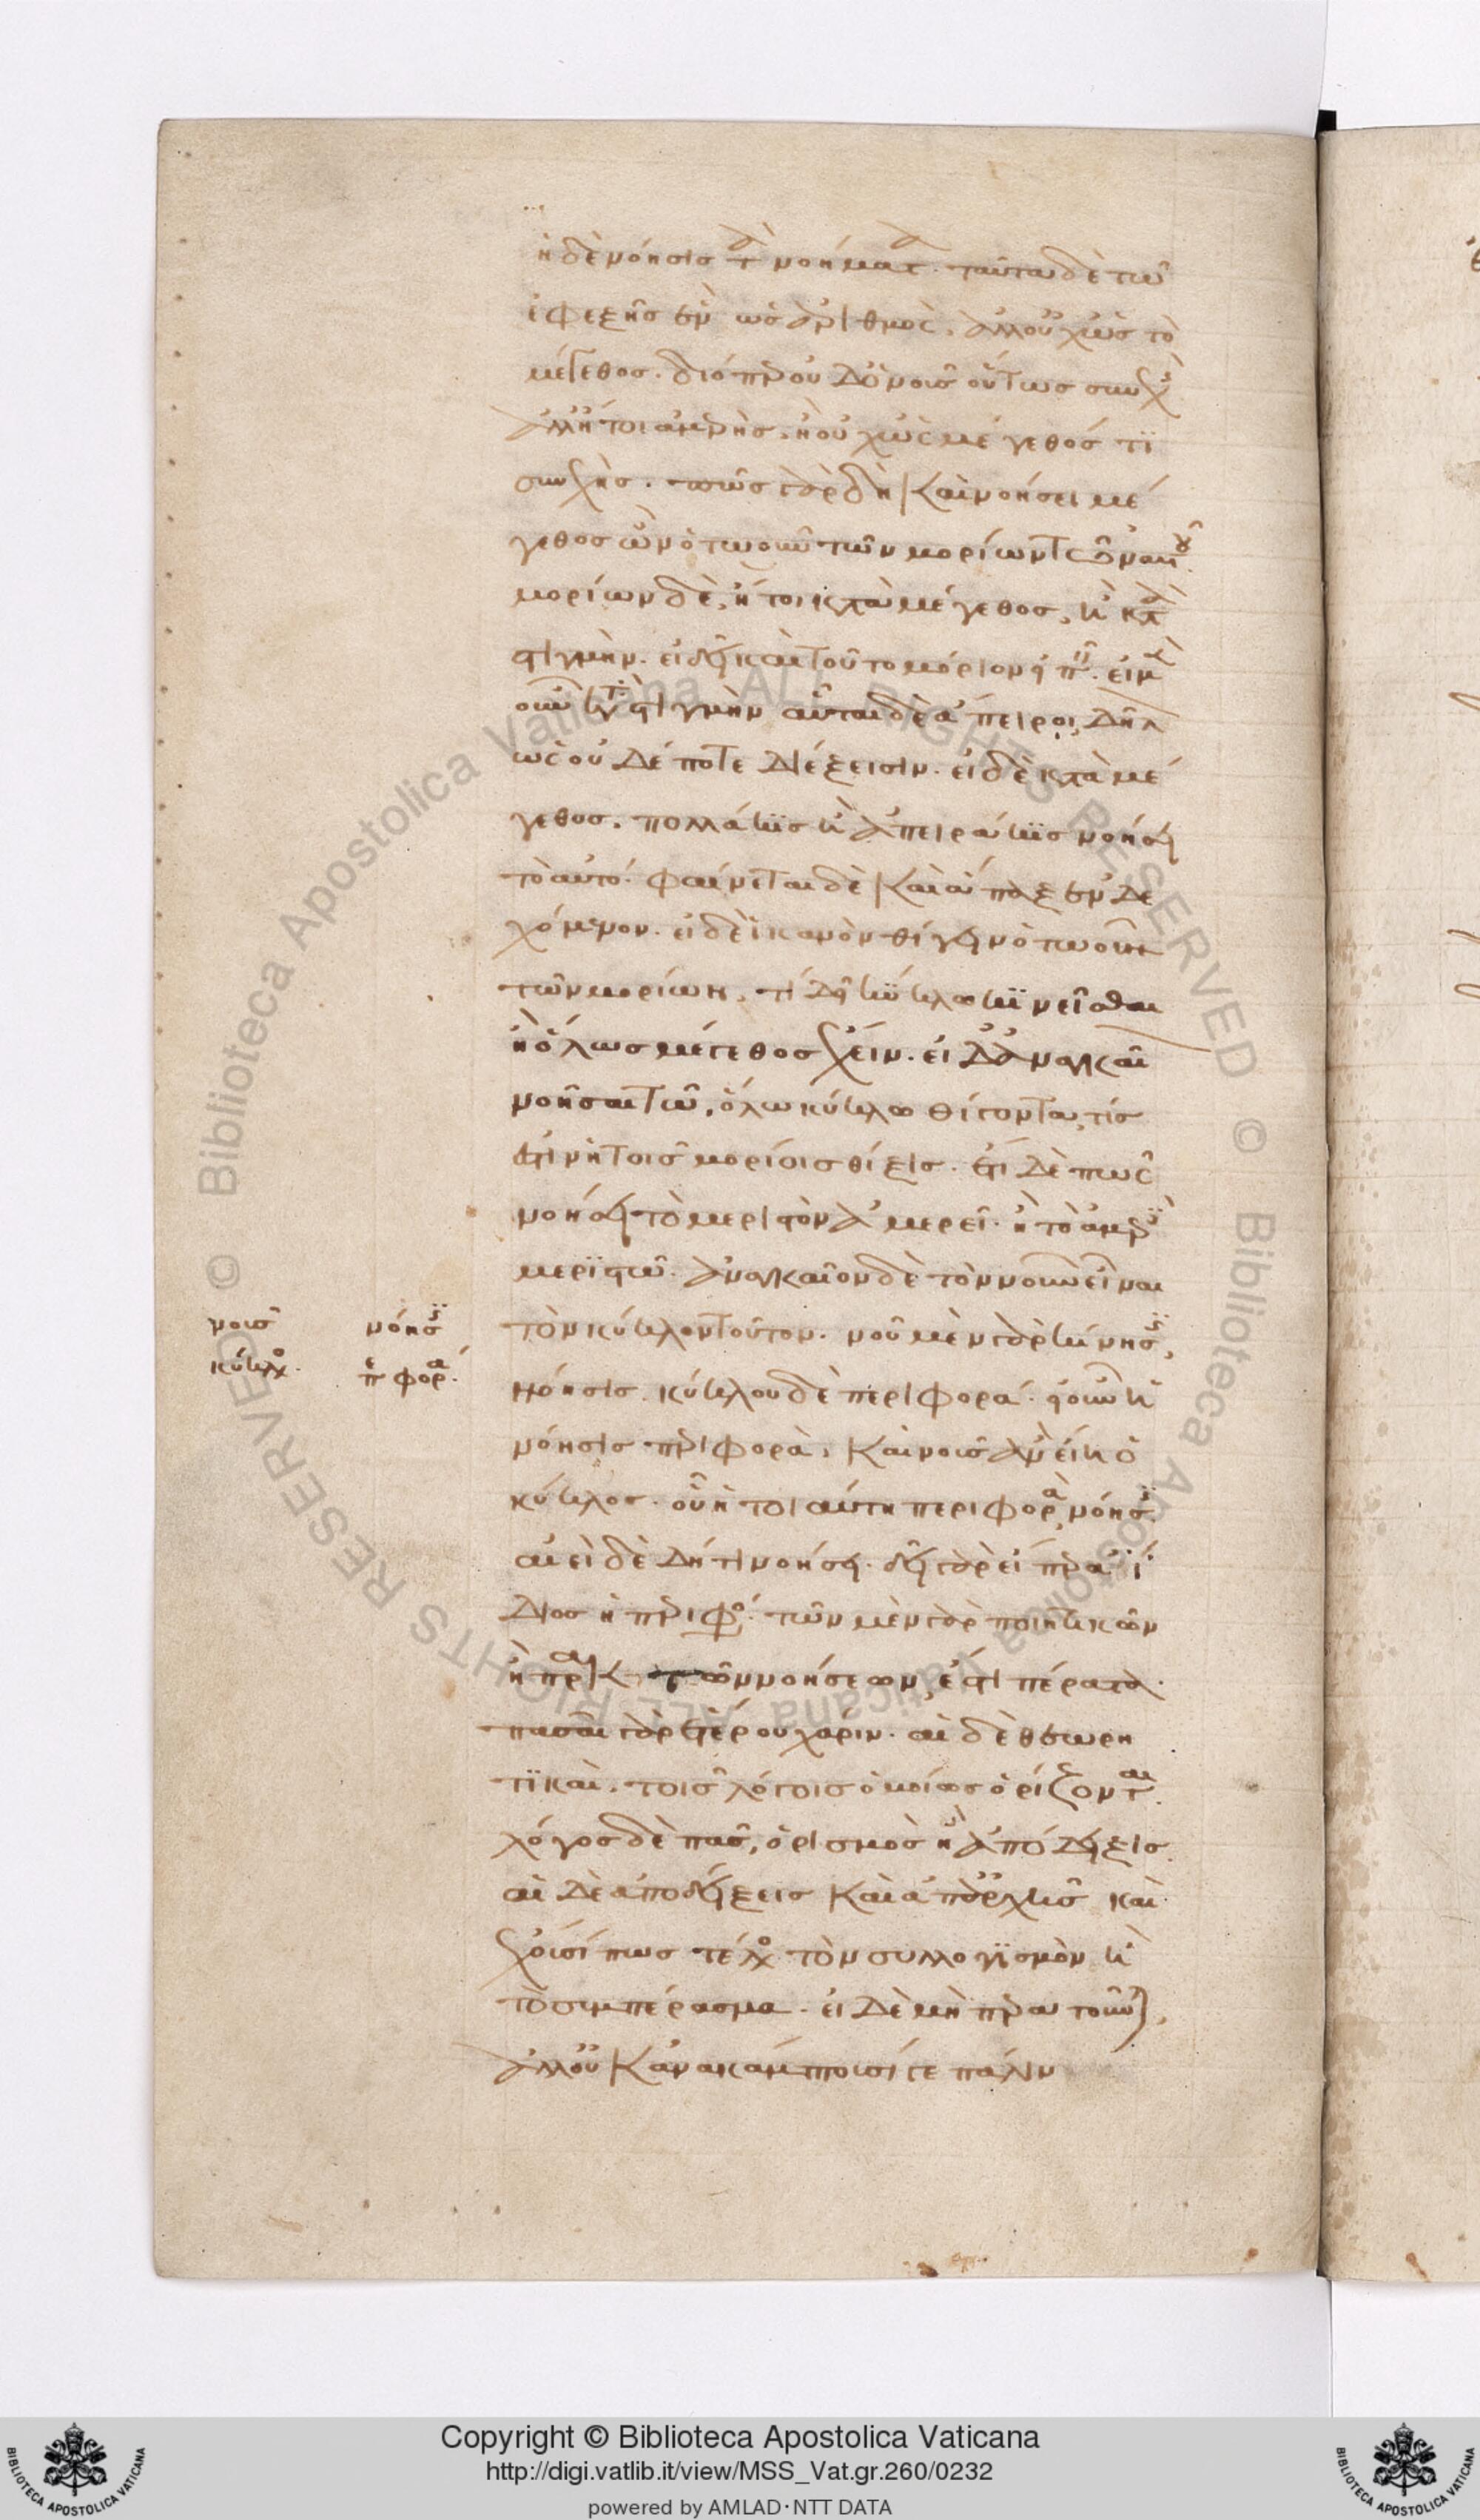 ἡ δὲ νόησις τὰ νοήματα. ταῦτα δὲ τῶ
ἐφεξῆς ἓν ὡς ἀριθμὸς. ἀλλ' οὐχ ὡς τὸ
μέγεθος. διόπερ οὐδ' ὁ νοῦς οὕτως συνεχὴς
ἀλλ' ἤτοι ἀμερὴς. ἢ οὐχ ὡς μέγεθός τι
συνεχὴς. πῶς γὰρ δὴ καὶ νοήσει μέ
γεθος ὢν ὁτωοῦν τῶν μορίων τῶν αὑτοῦ.
μορίων δὲ, ἤτοι κατὰ μέγεθος, ἢ κατὰ
στιγμὴν. εἰ δεῖ καὶ τοῦτο μόριον εἰπεῖν. εἰ μὲν
οὖν κατὰ στιγμὴν αὗται δὲ ἄπειροι, δῆλον
ὡς οὐδέποτε διέξεισιν. εἰ δὲ κατὰ μέ
γεθος. πολλάκις ἢ ἀπειράκις νοήσει
τὸ αὐτό. φαίνεται δὲ καὶ ἅπαξ ἐνδε
χόμενον. εἰ δὲ ἱκανὸν θίγειν ὁτωοῦν
τῶν μορίων, τί δεῖ κύκλω κινεῖσθαι
ἢ ὅλως μέγεθος ἔχειν. εἰ δ' ἀναγκαῖον
νοῆσαι τῶ, ὅλω κύκλω θίγοντα, τίς
ἐστιν ἡ τοῖς μορίοις θίξις. ἔτι δὲ πῶς
νοήσει τὸ μεριστὸν ἀμερεῖ. ἢ τὸ ἀμερὲς
μεριστῶ. ἀναγκαῖον δὲ τὸν νοῦν εἶναι
τὸν κύκλον τοῦτον. νοῦ μὲν γὰρ κίνησις,
νόησις. κύκλου δὲ περιφορά. εἰ οὖν ἡ
νόησις περιφορὰ. καὶ νοῦς ἂν εἴη ὁ
κύκλος. οὗ ἡ τοιαύτη περιφορὰ, νόησις.
αἰεὶ δὲ δή τι νοήσει. δεῖ γὰρ εἴπερ ἀΐ
διος ἡ περιφορά. τῶν μὲν γὰρ πρακτικῶν
νοήσεων ἔστι πέρατα.
πᾶσαι γὰρ ἑτέρου χάριν. αἱ δὲ θεωρη
τικαὶ. τοῖς λόγοις ὁμοίως ὁρίζονται.
λόγος δὲ πᾶς, ὁρισμὸς ἢ ἀπόδειξις
αἱ δὲ ἀποδείξεις καὶ ἀπ' ἀρχῆς καὶ
ἔχουσί πως τέλος τὸν συλλογισμὸν ἢ
τὸ συμπέρασμα. εἰ δὲ μὴ περατοῦνται,
ἀλλ' οὐκ ἀνακάμπτουσί γε πάλιν
νοῦς νόησις
κύκλος. περιφορά.